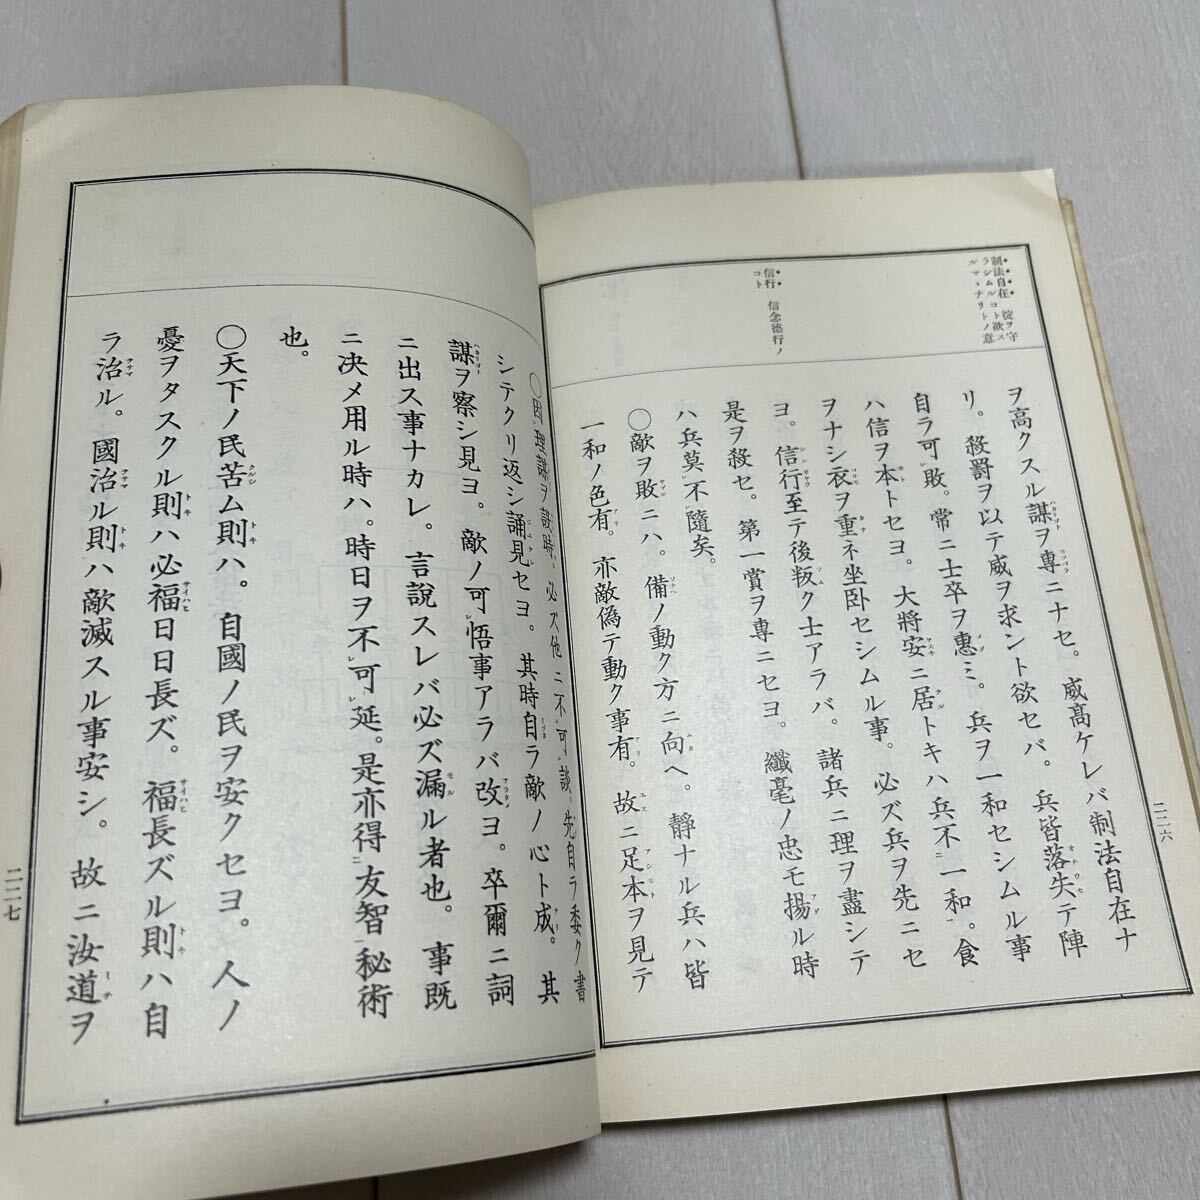 制法自在 掟ヲ守
ラシムルコト欲ス
ルマヽナリトノ意
信行 信念徳行ノ
コト
ヲ高クスル謀ヲ專ニナセ。威高ケレバ制法自在ナ
リ。殺罰ヲ以テ威ヲ求ント欲セバ。兵皆落失テ陣
自ラ可レ敗。常ニ士卒ヲ惠ミ。兵ヲ一和セシムル事
ハ信ヲ本トセヨ。大將安ニ居トキハ兵不二一和一。食
ヲナシ衣ヲ重ネ坐臥セシムル事。必ズ兵ヲ先ニセ
ヨ。信行至テ後叛ク士アラバ。諸兵ニ理ヲ盡シテ
是ヲ殺セ。第一賞ヲ專ニセヨ。纖毫ノ忠モ揚ル時
ハ兵莫レ不レ隨矣。
〇敵ヲ敗ニハ。備ノ動ク方ニ向ヘ。靜ナル兵ハ皆
一和ノ色有。亦敵僞テ動ク事有。故ニ足本ヲ見テ
二二六
〇因理謀ヲ設時。必ズ他ニ不レ可レ談。先自ラ委ク書
シテクリ返シ誦見セヨ。其時自ラ敵ノ心ト成。其
謀ヲ察シ見ヨ。敵ノ可レ悟事アラバ改ヨ。卒爾ニ詞
ニ出ス事ナカレ。言說スレバ必ズ漏ル者也。事既
ニ决メ用ル時ハ。時日ヲ不レ可レ延。是亦得二友智秘術
也。
〇天下ノ民苦ム則ハ。自國ノ民ヲ安クセヨ。人ノ
憂ヲタスクル則ハ必福日日長ズ。福長ズル則ハ自
ラ治ル。國治ル則ハ敵滅スル事安シ。故ニ汝道ヲ
二二七